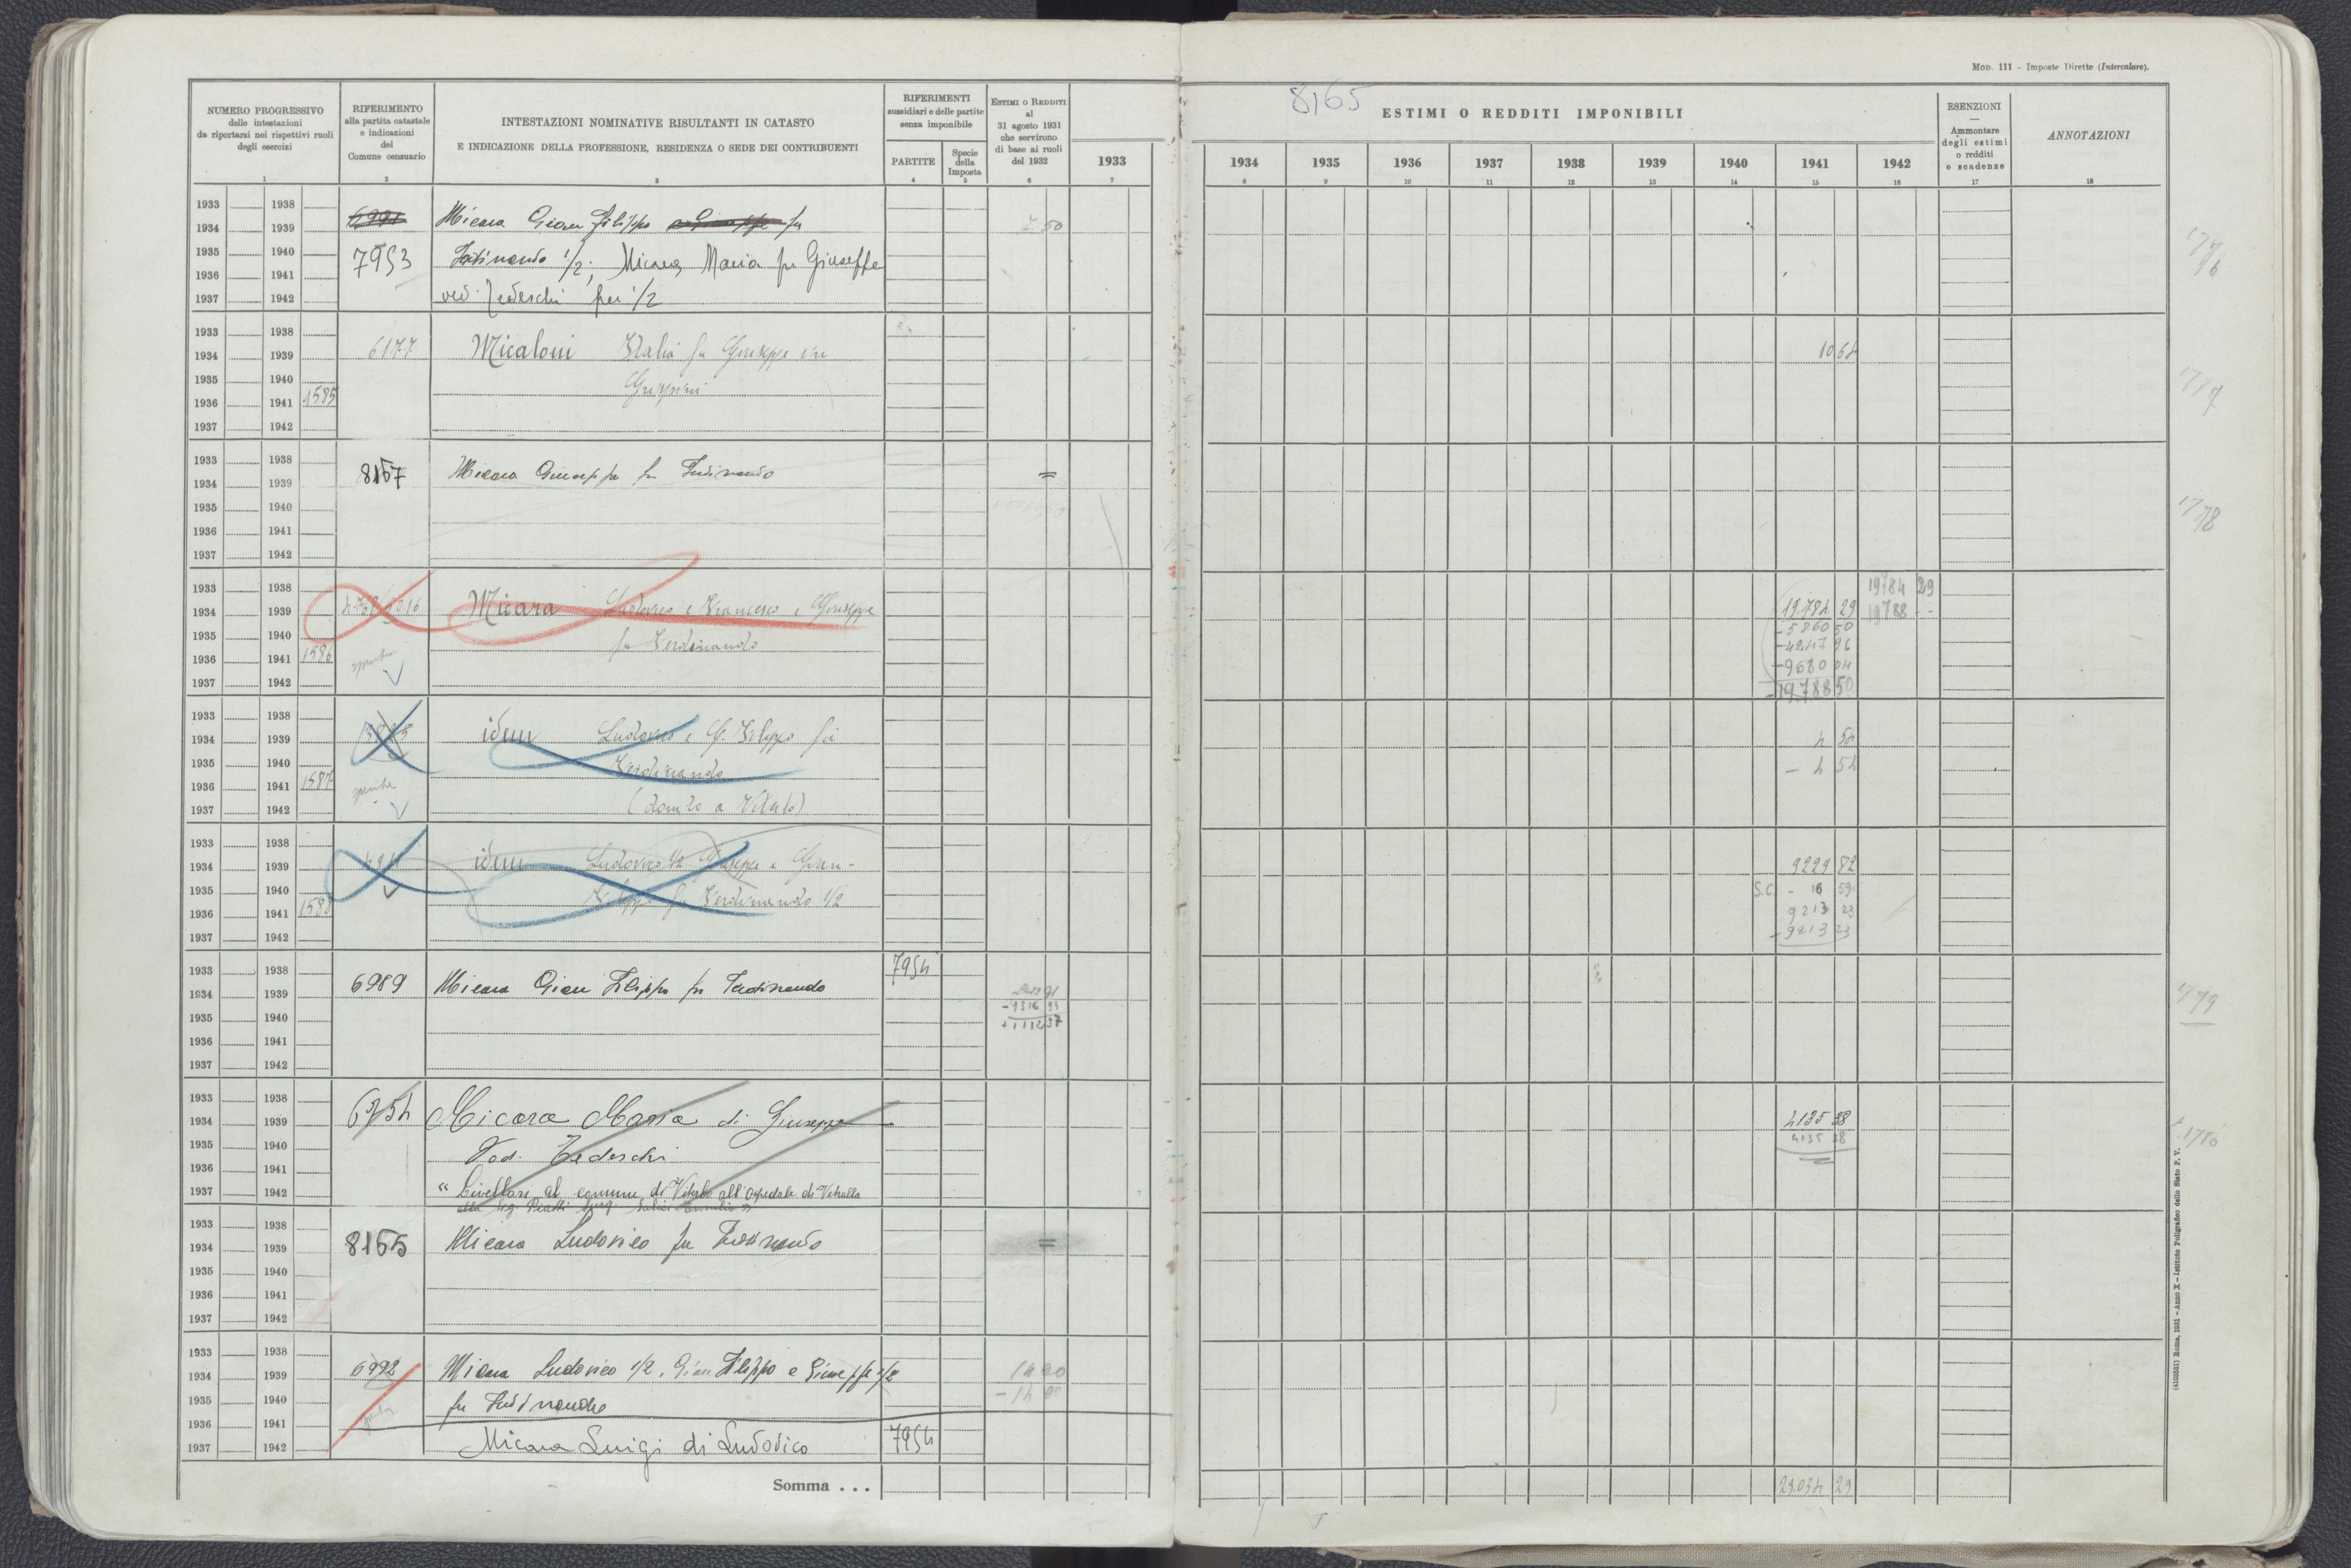 Mod. 111 – Imposte Dirette (Intercalare).
NUMERO PROGRESSIVO
delle intestazioni
da riportarsi nei rispettivi ruoli
degli esercizi
RIFERIMENTO
alla partita catastale
e indicazioni
del
Comune censuario
INTESTAZIONI NOMINATIVE RISULTANTI IN CATASTO
E INDICAZIONE DELLA PROFESSIONE, RESIDENZA O SEDE DEI CONTRIBUENTI
RIFERIMENTI
sussidiari e delle partite
senza imponibile
PARTITE
Specie
della
Imposta
ESTIMI O REDDITI
al
31 agosto 1931
che servirono
di base ai ruoli
del 1932
1933
8165
ESTIMI O REDDITI IMPONIBILI
1934 1935 1936 1937 1938 1939 1940 1941 1942
ESENZIONI
—
Ammontare
degli estimi
o redditi
e scadenze
ANNOTAZIONI
1 2 3 4 5 6 7 8 9 10 11 12 13 14 15 16 17 18
1933 1938
1934 1939 Micara Gian Filippo fu 50
1935 1940 7953 Ferdinando 1/2; Micara Maria fu Giuseppe
1936 1941
1937 1942 ved. Tedeschi per 1/2
1776
1933 1938
1934 1939 6177 Micaloni Italia fu Giuseppe in 10 64
1935 1940 Grispini
1936 1941 1585
1937 1942
1777
1933 1938
1934 1939 8167 Micara Giuseppe fu Ferdinando =
1935 1940
1936 1941
1937 1942
1778
1933 1938 19784 29
1934 1939 Micara Ludovico e Francesco e Giuseppe 19.784 29 19788 --
1935 1940 fu Ferdinando -5860 50
1936 1941 1586 -4247 96
-9680 04
1937 1942 -19.788 50
1933 1938
1934 1939 idem Ludovico e G. Filippo fu 4 54
1935 1940 Ferdinando
1936 1941 1587 - 4 54
1937 1942 (domto a Viterbo)
1933 1938
1934 1939 idem Ludovico 1/2 Giuseppe e Gian- 9229 82
1935 1940 Filippo fu Ferdinando 1/2 S.C. - 16 59
1936 1941 1588 9213 23
1937 1942 -9213 23
1933 1938 7954
1934 1939 6989 Micara Gian Filippo fu Ferdinando
1935 1940 +1112 37
1936 1941
1937 1942
1779
1933 1938
1934 1939 6954 Micara Maria di Giuseppe 4135 28
1935 1940 Ved. Tedeschi 4135 28
1936 1941
1937 1942 "Livellari al comune di Viterbo all'Ospedale di Vetralla
1780
1933 1938
1934 1939 8165 Micara Ludovico fu Ferdinando =
1935 1940
1936 1941
1937 1942
1933 1938
1934 1939 6992 Micara Ludovico 1/2, Gian Filippo e Giuseppe 1/2
1935 1940 fu Ferdinando
1936 1941
1937 1942 Micara Luigi di Ludovico 7954
Somma . . . 29.034 29
(4103531) Roma, 1931 – Anno X – Istituto Poligrafico dello Stato P. V.